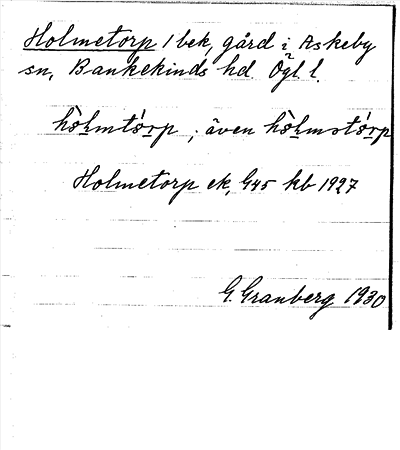 Holmetorp 1 bek, gård i Askeby
sn, Bankekinds hd Ögl l.
hòlmtórp, även hòlmstórp
Holmetorp ek, G45 kb 1927
G. Granberg 1930